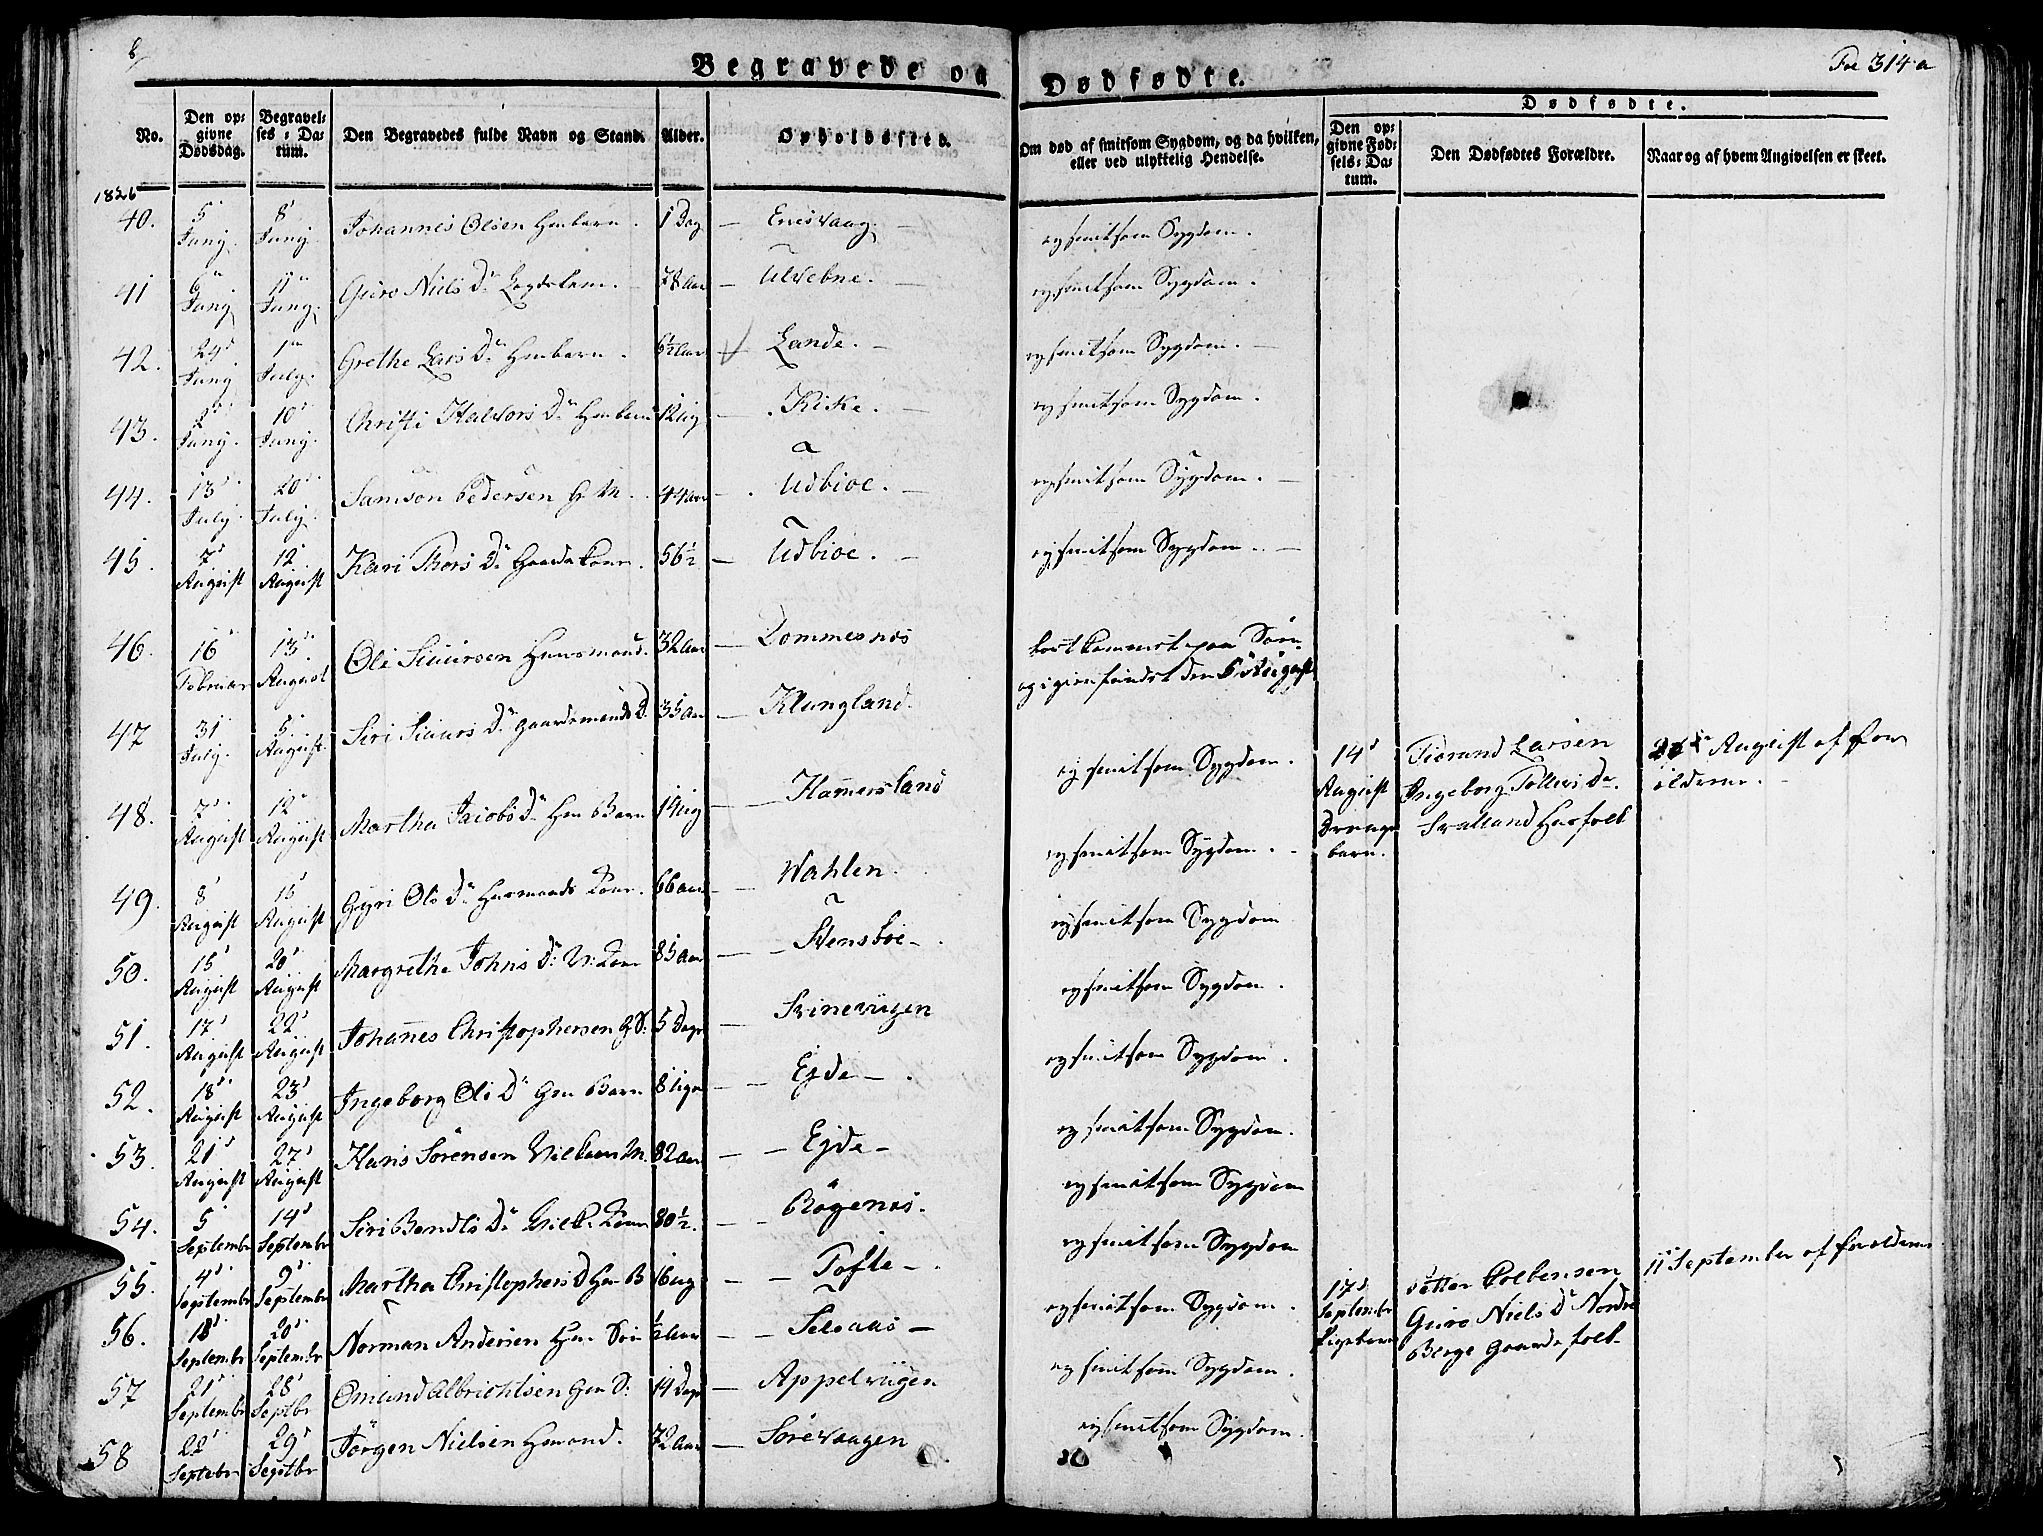 8/
Begravede og Dødfødte.
Fol 314 a
No.
Den opgivne Dødsdag.
Begravelses-Datum.
Den Begravedes fulde Navn og Stand.
Alder.
Opholdssted.
Om død af smitsom Sygdom, og da hvilken, eller ved ulykkelig Hendelse.
Dødfødte.
Den opgivne Fødsels-Datum.
Den Dødfødtes Forældre.
Naar og af hvem Angivelsen er skeet.
1826
40. 5 Juny. 8 Juny Johannes Olsen Hmbarn. 1 Dag – Enesvaag. ey smitsom Sygdom.
41 6 Juny 11 Juny. Guro Niels Dr Lægdslem. 78 Aar – Ulvebne. – ey smitsom Sygdom.
42. 29 Juny 1 July. Grethe Lars Dr Hmbarn. 6½ Aar Lande. – ey smitsom Sygdom. –
43. 2 Juny. 10 Juny. Christi Halvors Dr Hmbarn 12 ug – Kike. – ey smitsom Sygdom.
44. 13 July. 20 July. Samson Pedersen G. M. 44 aar – Udbioe. – ey smitsom Sygdom. –
45. 7 August 12 August Kari Thors Dr Gaards kone. 56½ – Udbioe. – ey smitsom Sygdom. –
46. 16 Februar 13 August Ole Siuursen Huusmand. 32 Aar – Dommesnes bortkommet paa Søen og igienfundet den 5 August
47 31 July. 5 August. Siri Siuurs Dr gaardsmands D. 35 Aar – Klungland. ey smitsom Sygdom.
14 August Drenge barn. Tiorand Larsen Ingeborg Tollevs Dr. Svalland Husfolk August af for ældrene.
48. 7 August 12 August Martha Jacobs Dr Hm Barn 19 ug – Hamersland ey smitsom Sygdom. –
49. 8 August 15 August Gyri Ols Dr Husmands Kone. 66 aar – Wahlen. ey smitsom Sygdom
50. 15 August 20 August Margrethe Johns Dr: Kone 85 Aar – Stensboe – ey smitsom Sygdom.
51. 17 August 22 August Johannes Christophersen G S: 5 Dage – Svinevigen ey smitsom Sygdom.
52. 18 August 23 August Ingeborg Oli Dr Gm Barn 8 Uger – Ejde – ey smitsom Sygdom.
53. 21 August 27 August Hans Sørensen Vilkaars M. 82 Aar – Ejde – ey smitsom Sygdom
54. 5 September 14 September Siri Bendts Dr Vilk. Kone 80½. – Bøgenes. ey smitsom Sygdom
55. 4 September 9 September Martha Christophers D Hm B 16 ug – Tofte – ey smitsom Sygdom.
17 September Pigebarn Petter Colbensen Guro Niels Dr Nordre Berge Gaards folk 11 September af forældrene
56. 18 September 20 September Norman Andersen Hm Søn ½ Aar – Selaas – ey smitsom Sygdom.
57 21 September 28 Septbr Omund Albrichtsen Gm S: 14 Dage – Appelvigen
58 22 Septebr 29 Septbr Jørgen Nielsen Hmand. 72 Aar – Sørevaagen ey smitsom Sygdom.